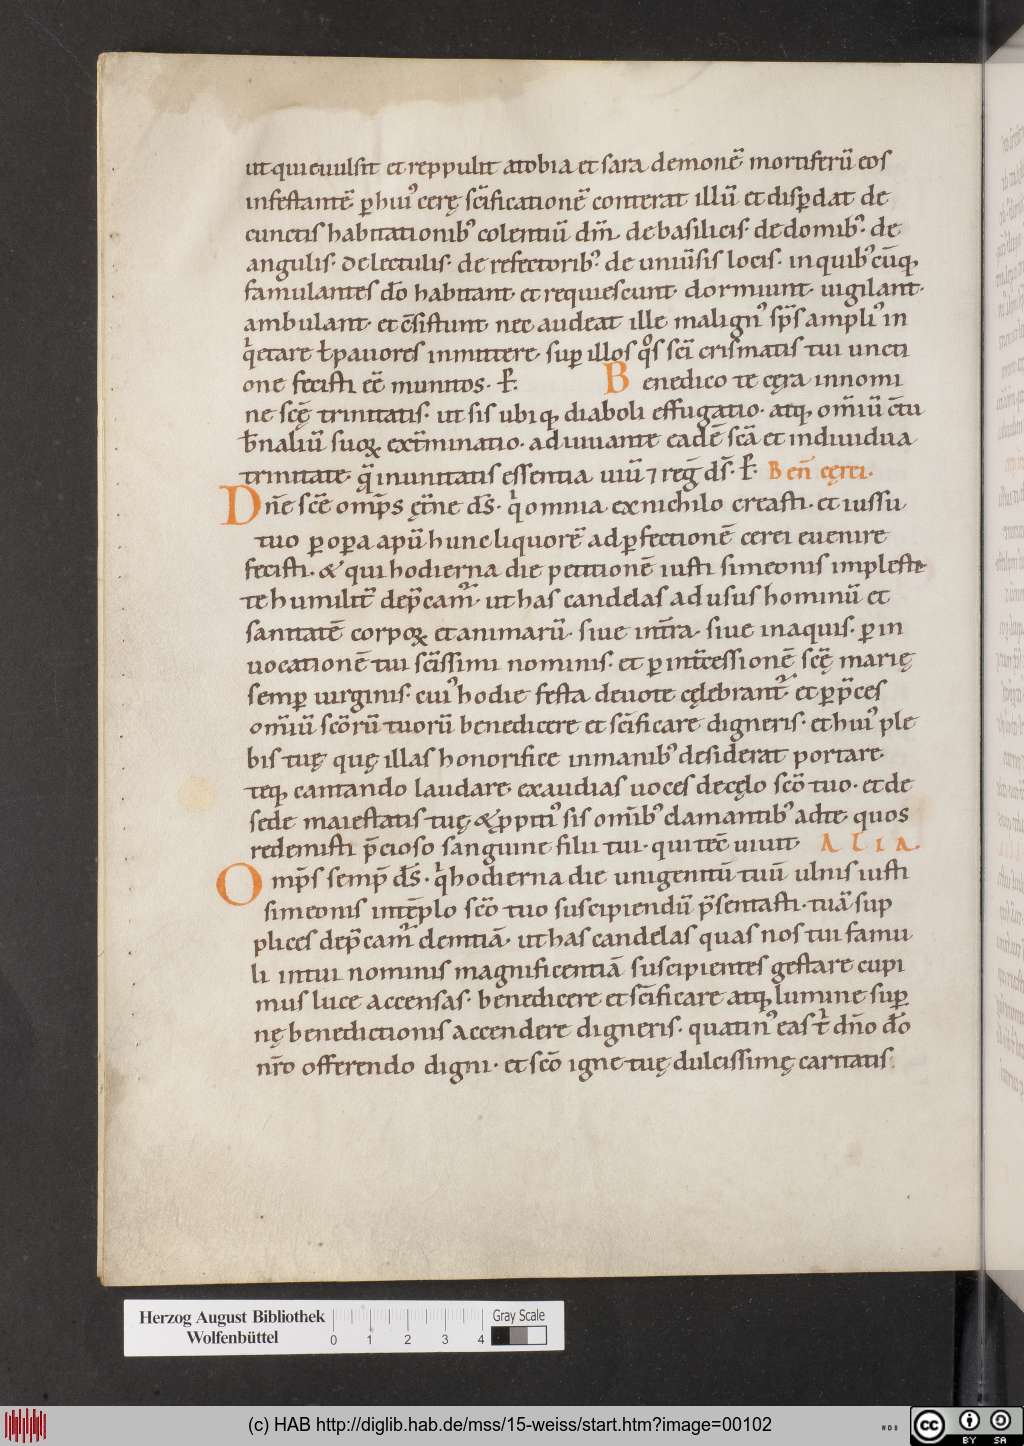 ut qui euulsit et reppulit atobia et sara demonē mortiferū eos
infestantē ꝑ huiꝰ cerę sc̄ificationē conterat illū et disꝑdat de
cunctis habitationibꝰ colentiū dm̄. de basilicis. de domibꝰ. de
angulis. de lectulis. de refectoribꝰ. de uniūsis locis. in quibꝰcūq;
famulantes dō habitant. et requiescunt. dormiunt. uigilant.
ambulant. et c̄sistunt. nec audeat ille malignꝰ sp̄s ampliꝰ in
qͥetare ł pauores inmittere. suꝑ illos qͦs sc̄i crismatis tui uncti
one fecisti eē munitos. ꝑ. Benedico te cęra in nomi
ne scę̄ trinitatis. ut sis ubiq; diaboli effugatio. atq; om̄iū c̄tu
b̄naliū suoꝝ ext̄minatio. adiuuante eadē sc̄a et indiuidua
trinitate. q̄ in unitatis essentia uiuī ⁊ reg̅ ds̄. ꝑ. Ben̄ cęrei.
Dn̄e sc̄e omp̄s ęt̄ne ds̄. qͥ omnia ex nichilo creasti. et iussu
tuo ꝑ oꝑa apū hunc liquorē ad ꝑfectionē cerei euenire
fecisti. & qui hodierna die petitionē iusti simeonis implesti
te humilit̄ dep̄camꝰ. ut has candelas ad usus hominū et
sanitatē corpoꝝ et animarū. siue int̄ra. siue in aquis. ꝑ in
uocationē tui sc̄issimi nominis. et ꝑ int̄cessionē scę̄ marię
semꝑ uirginis. cuiꝰ hodie festa deuote cęlebrantꝰ. et ꝑ p̄ces
om̄iū sc̄orū tuorū benedicere et sc̄ificare digneris. et huiꝰ ple
bis tuę quę illas honorifice in manibꝰ desiderat portare.
teq; cantando laudare. exaudias uoces de cęlo sc̄o tuo. et de
sede maiestatis tuę & ꝓpitiꝰ sis om̄ibꝰ clamantibꝰ ad te. quos
redemisti p̄cioso sanguine filii tui. qui tec̄ uiuit. ALIA.
Omp̄s semp̄ ds̄. qͥ hodierna die unigenitū tuū ulnis iusti
simeonis in tēplo sc̄o tuo suscipiendū p̄sentasti. tuā sup
plices dep̄camꝰ clem̄tiā. ut has candelas quas nos tui famu
li in tui nominis magnificentiā suscipientes gestare cupi
mus luce accensas. benedicere et sc̄ificare atq; lumine suꝑ
nę benedictionis accendere digneris. quatinꝰ eas tͥ dn̄o dō
nr̄o offerendo digni. et sc̄o igne tuę dulcissimę caritatis
Herzog August Bibliothek
Wolfenbüttel
0 1 2 3 4
Gray Scale
(c) HAB http://diglib.hab.de/mss/15-weiss/start.htm?image=00102
WDB
cc BY SA